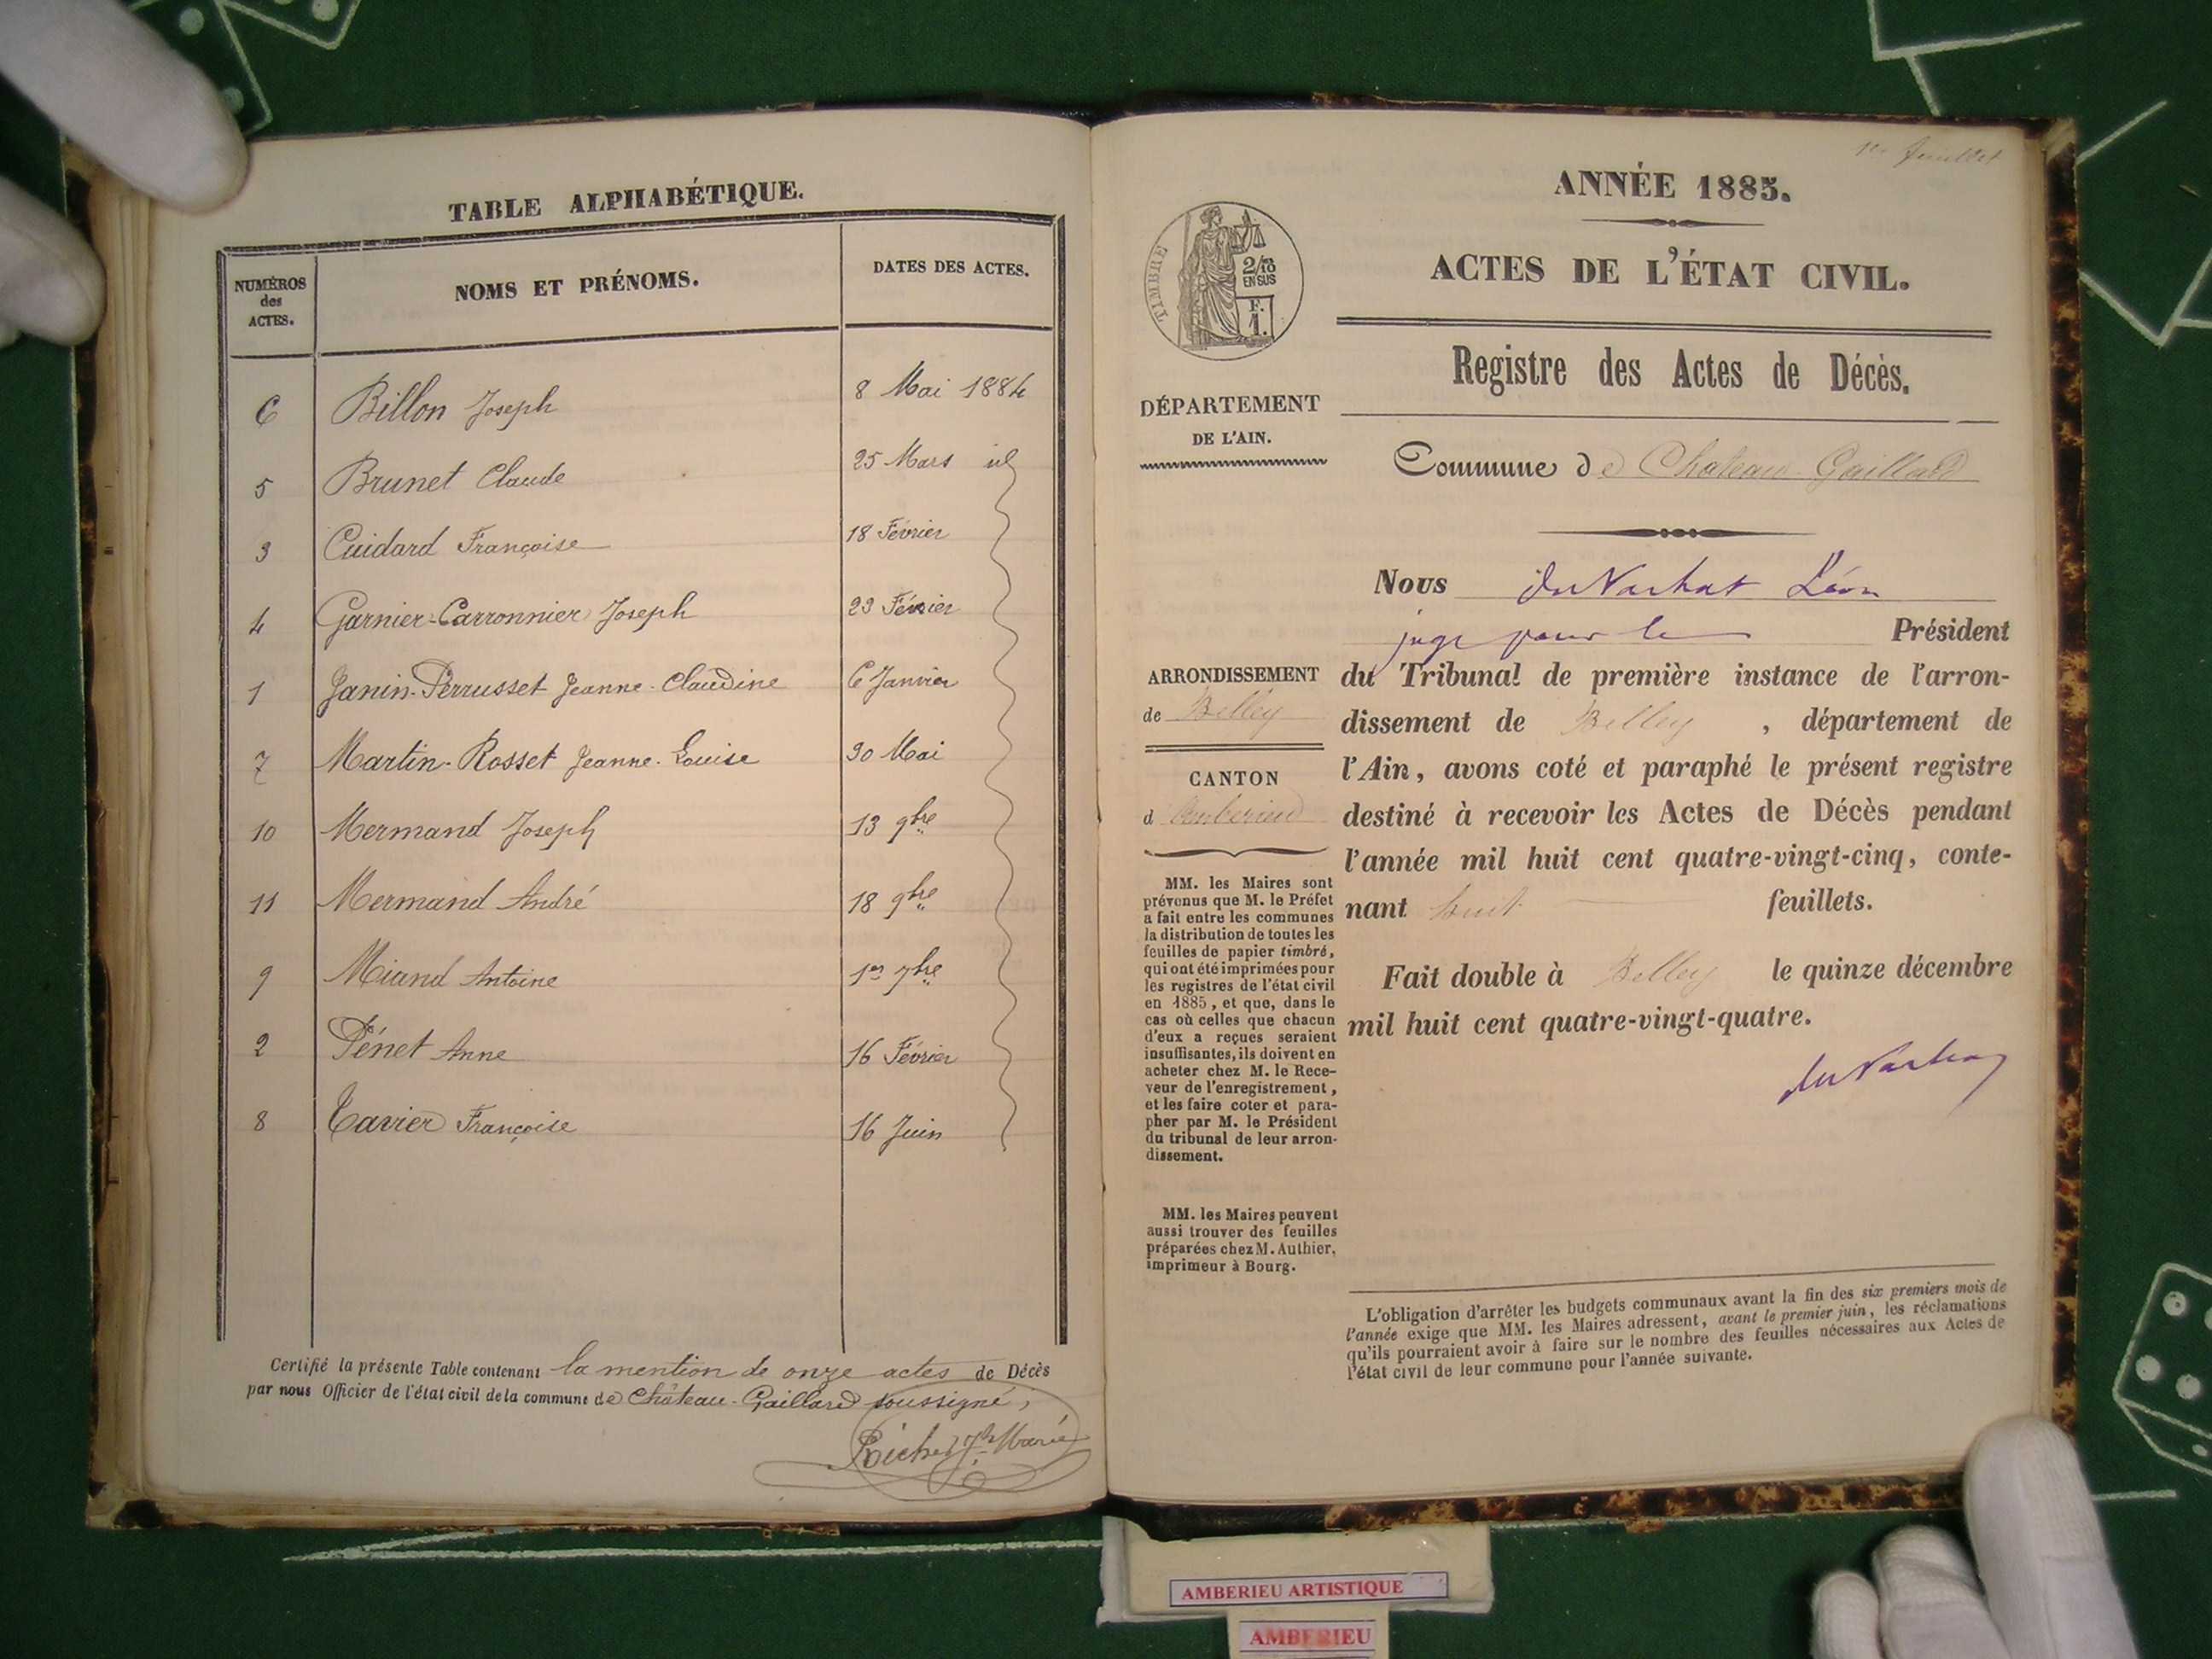 TABLE ALPHABÉTIQUE.
NUMÉROS des ACTES. NOMS ET PRÉNOMS. DATES DES ACTES.
6 Billon Joseph 8 Mai 1884
5 Brunet Claude 25 Mars id
3 Cuidard Françoise 18 Février
4 Garnier-Carronnier Joseph 23 Février
1 Janin-Perrusset Jeanne-Claudine 6 Janvier
7 Martin-Rosset Jeanne-Louise 30 Mai
10 Mermand Joseph 13 9bre
11 Mermand André 18 9bre
9 Miand Antoine 1er 7bre
2 Pénet Anne 16 Février
8 Tavier Françoise 16 Juin
Certifié la présente Table contenant la mention de onze actes de Décès
par nous Officier de l'état civil de la commune de Château-Gaillard soussigné,
1er feuillet
ANNÉE 1885.
ACTES DE L'ÉTAT CIVIL.
TIMBRE
2/10
EN SUS
F.
1.
Registre des Actes de Décès.
DÉPARTEMENT
DE L'AIN.
Commune de Chateau-Gaillard
Nous Léon
juge pour le Président
du Tribunal de première instance de l'arron-
dissement de Belley, département de
l'Ain, avons coté et paraphé le présent registre
destiné à recevoir les Actes de Décès pendant
l'année mil huit cent quatre-vingt-cinq, conte-
nant huit feuillets.
Fait double à Belley le quinze décembre
mil huit cent quatre-vingt-quatre.
ARRONDISSEMENT
de Belley
CANTON
d'Ambérieu
MM. les Maires sont
prévenus que M. le Préfet
a fait entre les communes
la distribution de toutes les
feuilles de papier timbré,
qui ont été imprimées pour
les registres de l'état civil
en 1885, et que, dans le
cas où celles que chacun
d'eux a reçues seraient
insuffisantes, ils doivent en
acheter chez M. le Rece-
veur de l'enregistrement,
et les faire coter et para-
pher par M. le Président
du tribunal de leur arron-
dissement.
MM. les Maires peuvent
aussi trouver des feuilles
préparées chez M. Authier,
imprimeur à Bourg.
L'obligation d'arrêter les budgets communaux avant la fin des six premiers mois de
l'année exige que MM. les Maires adressent, avant le premier juin, les réclamations
qu'ils pourraient avoir à faire sur le nombre des feuilles nécessaires aux Actes de
l'état civil de leur commune pour l'année suivante.
AMBERIEU ARTISTIQUE
AMBERIEU